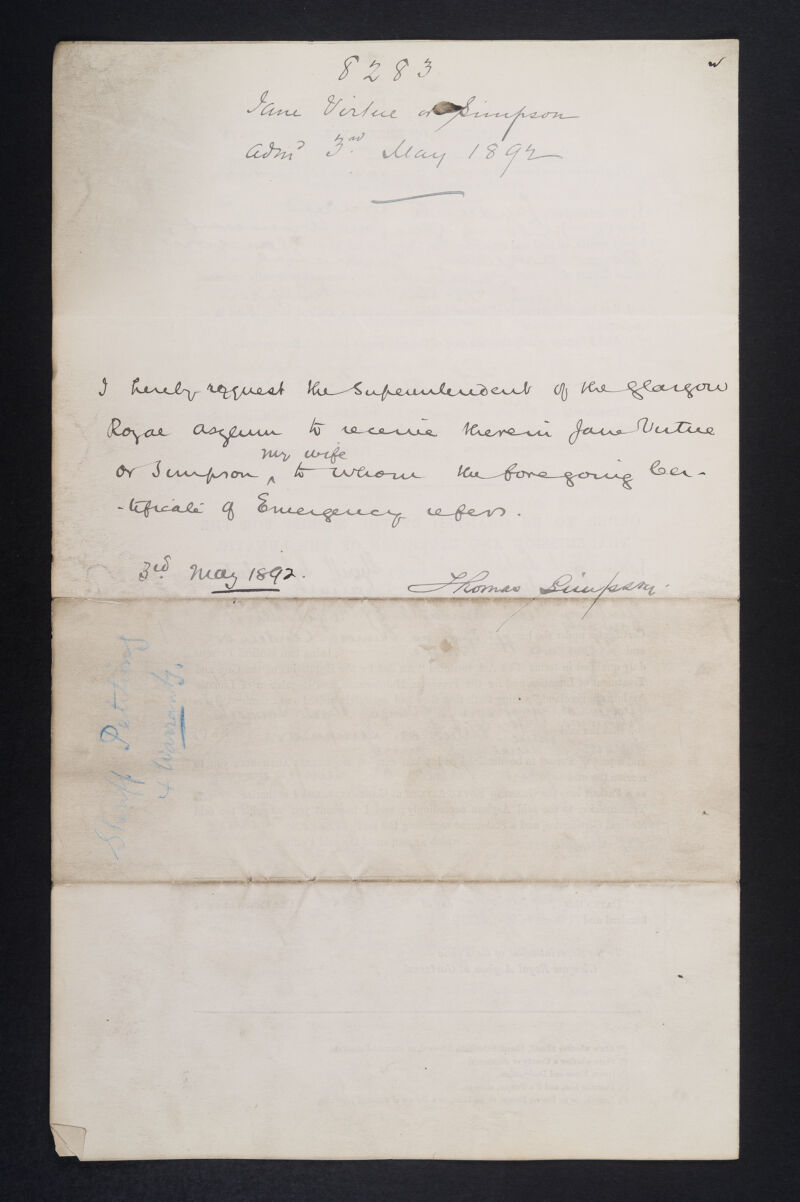 8283
Jane Virtue or Simpson
Admd 3rd May 1892
I hereby request the Superintendent of the Glasgow
Royal Asylum to receive therein Jane Virtue
or Simpson ^ my wife to whom the foregoing Cer-
-tificate of Emergency refers.
3rd. May 1892.
Thomas Simpson.
Sheriff Petition
& Warrant.